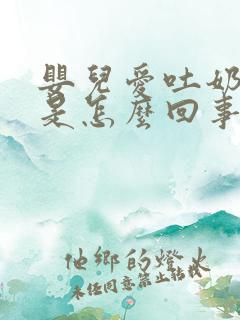 嬰兒愛吐奶
是怎麼回事
他鄉的燈火
未經同意禁止轉載